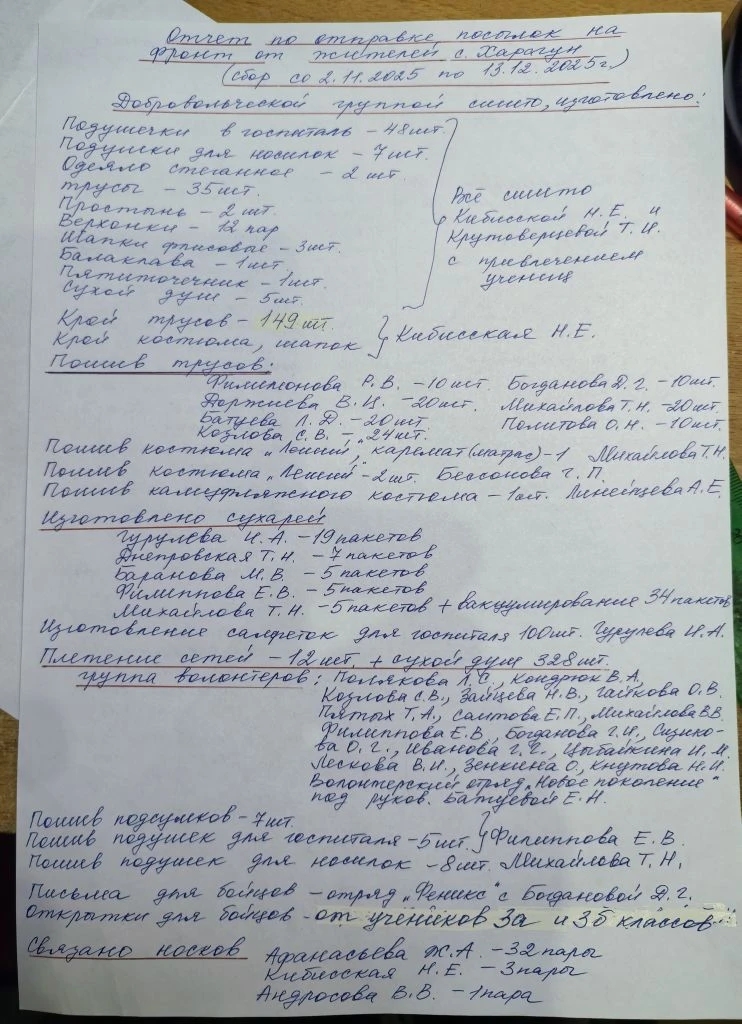 Отчет по отправке посылок на
фронт от жителей с. Харагун
(сбор со 2.11.2025 по 13.12.2025г.)
Добровольческой группой сшито, изготовлено:
Подушечки в госпиталь - 48шт.
Подушки для носилок - 7шт.
Одеяло стеганное - 2шт.
трусы - 35шт.
Простынь - 2шт.
Верхонки - 12 пар
Шапки флисовые - 3шт.
Балаклава - 1шт
Пятиточечник - 1шт.
Сухой душ - 5шт.
Всё сшито
Кибисской Н.Е. и
Крутоверцевой Т.И.
с привлечением
учениц
Крой трусов - 149шт.
Крой костюма, шапок
Кибисская Н.Е.
Пошив трусов:
Филимонова Р.В. - 10шт. Богданова Д.Г. - 10шт.
Доржиева В.Ц. - 20шт. Михайлова Т.Н. - 20шт.
Батуева Л.Д. - 20шт. Политова О.Н. - 10шт.
Козлова С.В. - 24шт.
Пошив костюма "Леший", каремат (матрас) - 1 Михайлова Т.Н.
Пошив костюма "Леший" - 2шт. Бессонова Г.П.
Пошив камуфляжного костюма - 1шт. Линейцева А.Е.
Изготовлено сухарей
Гурулева И.А. - 19 пакетов
Днепровская Т.Н. - 7 пакетов
Баранова М.В. - 5 пакетов
Филиппова Е.В. - 5 пакетов
Михайлова Т.Н. - 5 пакетов + вакуумирование 34 пакетов
Изготовление салфеток для госпиталя 100шт. Гурулева И.А.
Плетение сетей - 12шт. + сухой душ 328шт.
группа волонтеров: Полякова Л.С., Кондрюк В.А,
Козлова С.В., Зайцева Н.В., Гайкова О.В.
Пятых Т.А., Саитова Е.П., Михайлова В.В.
Филиппова Е.В., Богданова Г.И.,
Иванова Г.Г., Цыбайкина И.М.
Лескова В.И., Зенкина О, Кнутова Н.И.
Волонтерский отряд "Новое поколение"
под руков. Батуевой Е.Н.
Пошив подсумков - 7шт.
Пошив подушек для госпиталя - 5шт. Филиппова Е.В.
Пошив подушек для носилок - 8шт. Михайлова Т.Н.
Письма для бойцов - отряд "Феникс" с Богдановой Д.Г.
Открытки для бойцов - от учеников 3а и 3б классов
Связано носков
Афанасьева Ж.А. - 32 пары
Кибисская Н.Е. - 3 пары
Андросова В.В. - 1 пара